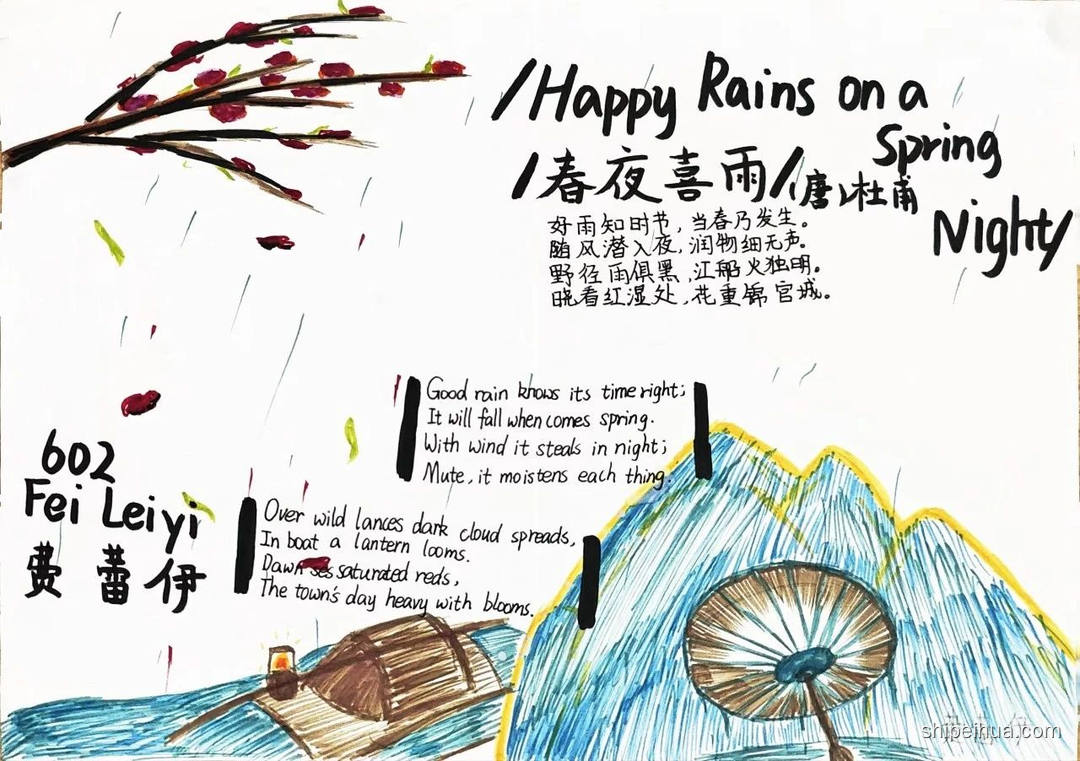 /Happy Rains on a
Spring
Night/
/春夜喜雨/(唐)杜甫
好雨知时节,当春乃发生。
随风潜入夜,润物细无声。
野径雨俱黑,江船火独明。
晓看红湿处,花重锦官城。
Good rain knows its time right;
It will fall when comes spring.
With wind it steals in night;
Mute, it moistens each thing.
Over wild lances dark cloud spreads,
In boat a lantern looms.
Dawn ses saturated reds,
The town's day heavy with blooms.
602
Fei Leiyi
费蕾伊
shipeihua.com